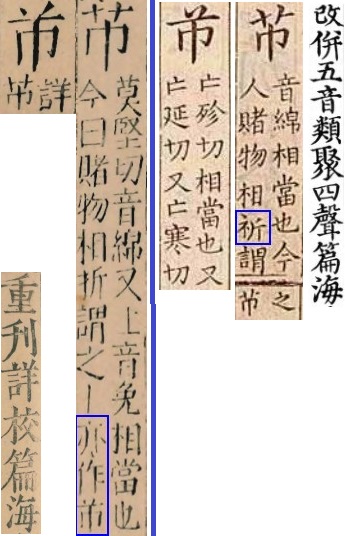 改併五音類聚四聲篇海
芇
音綿相當也今
人賭物相祈謂
之
芇
亡殄切相當也又
亡延切又亡寒切
芇
莫堅切音綿又上音免相當也
今日賭物相折謂之丨亦作
詳
重刊詳校篇海